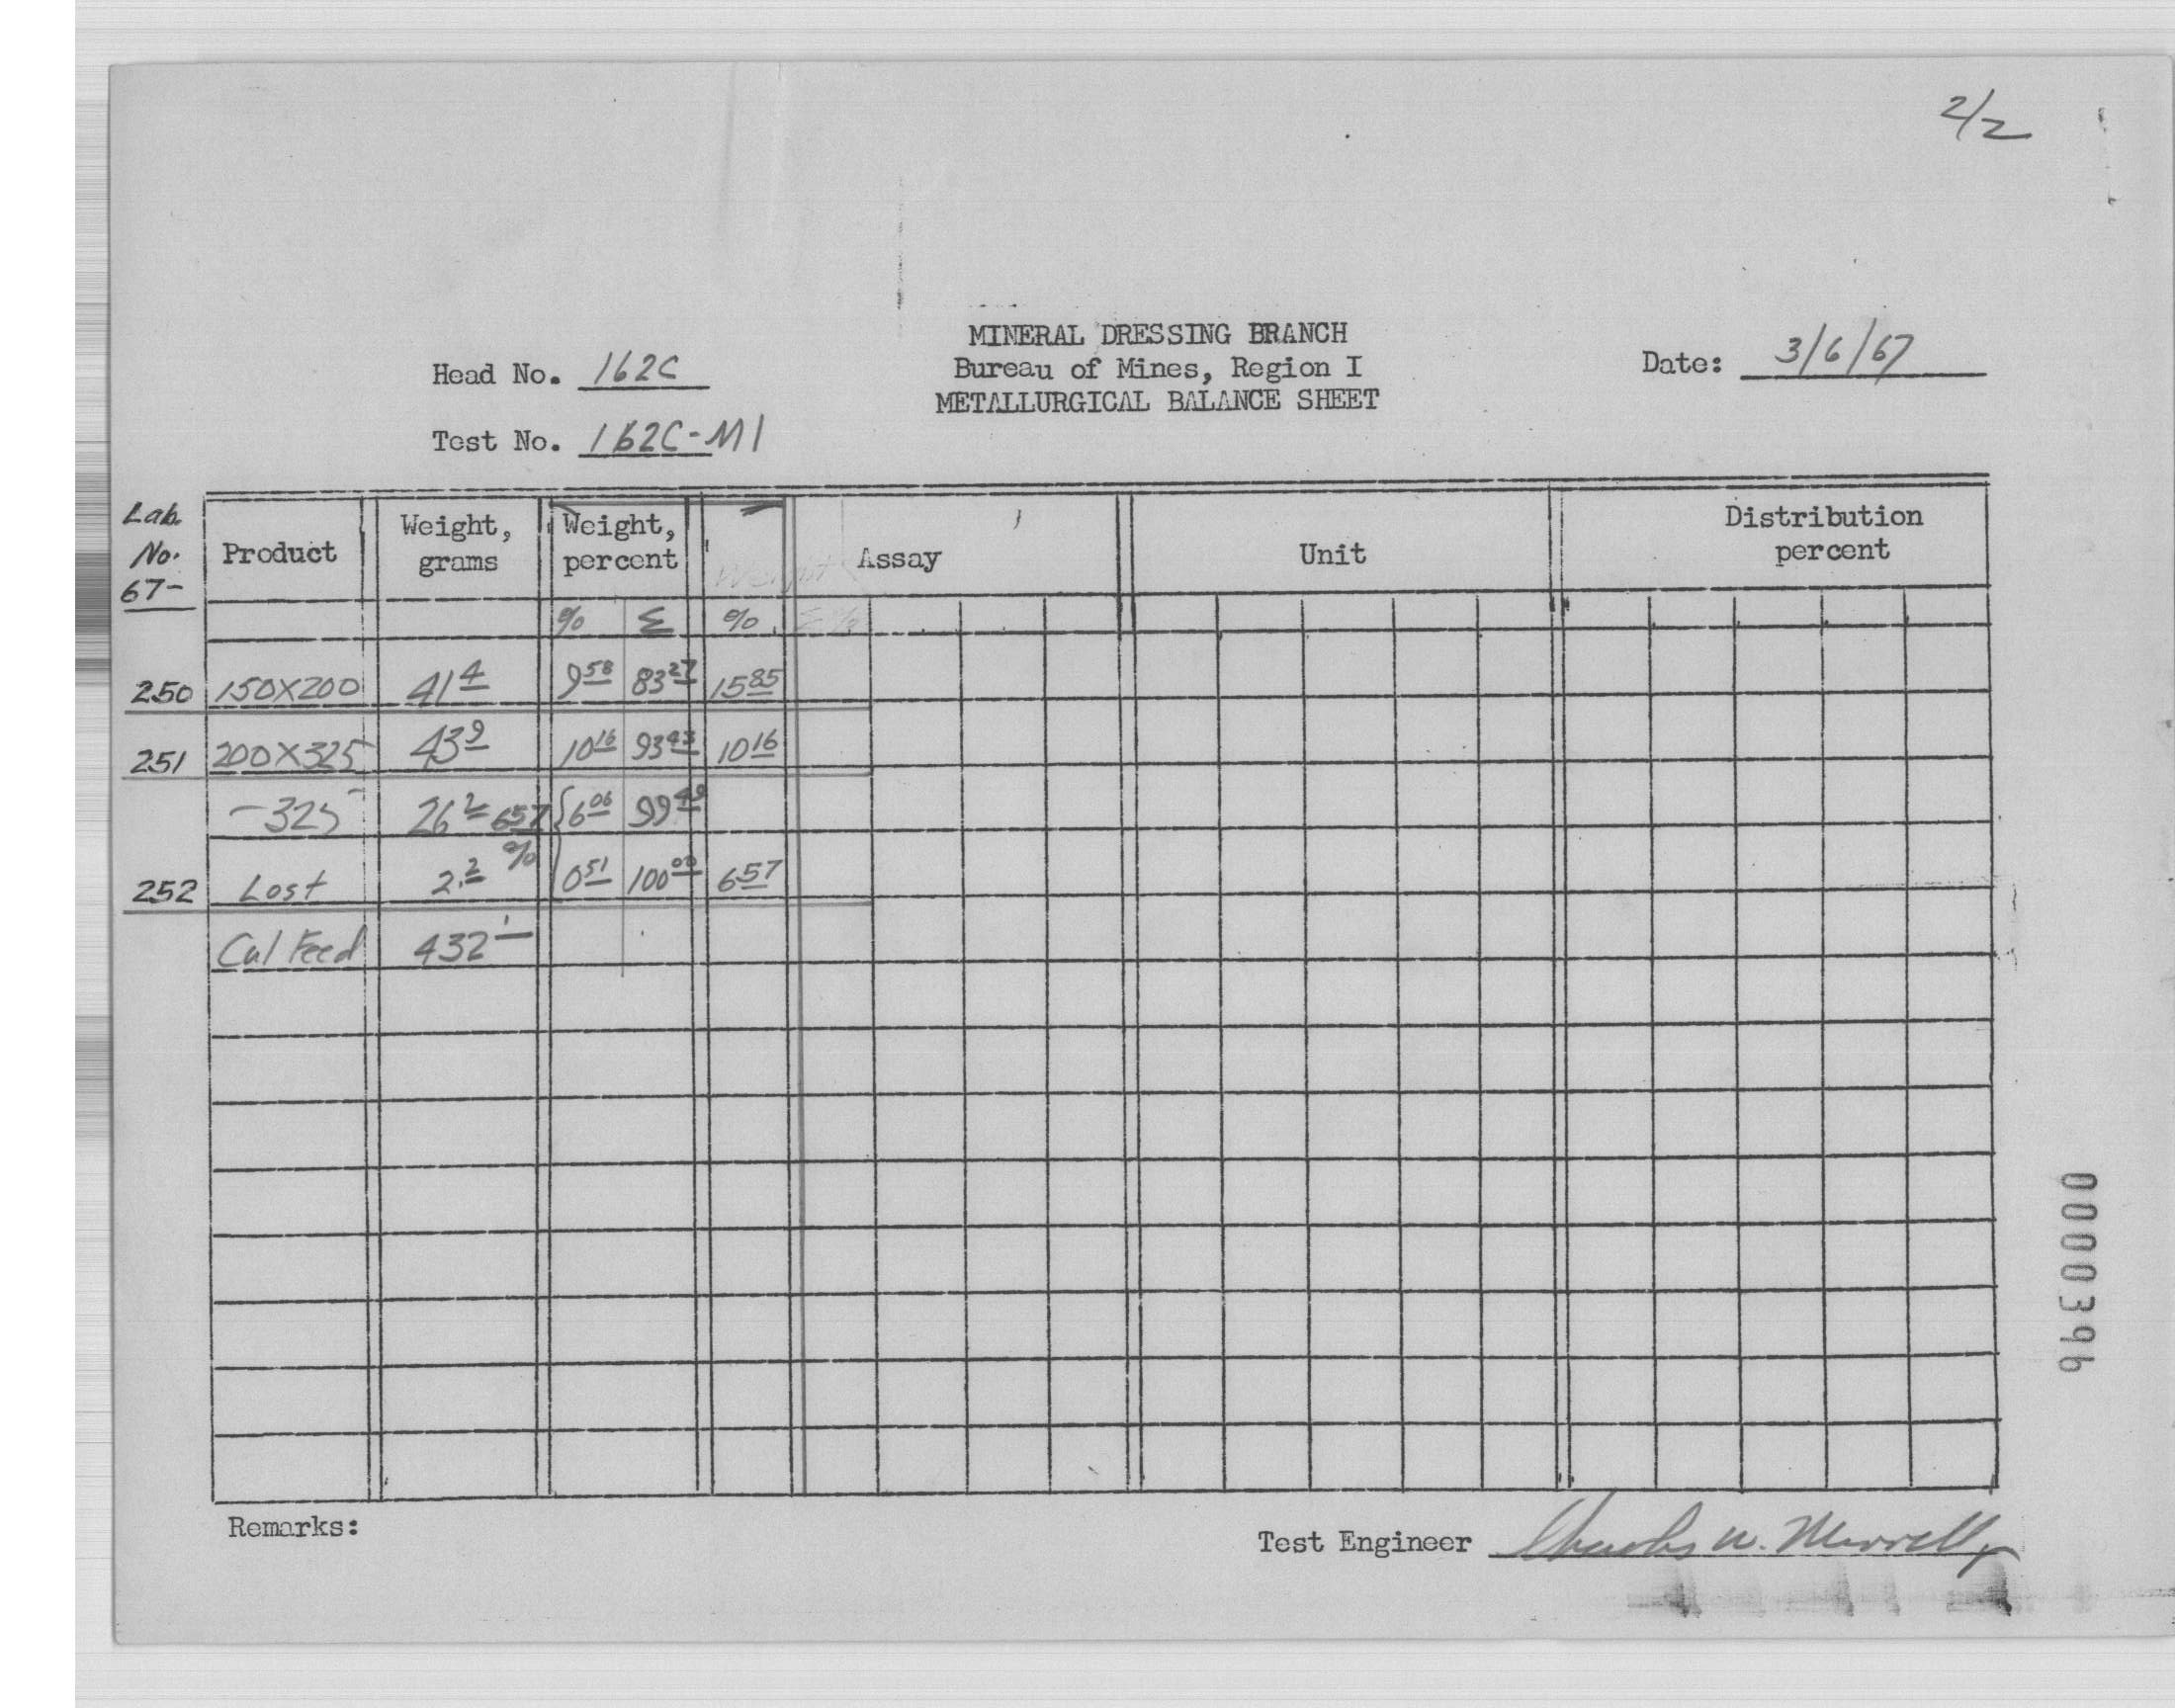 2/2
MINERAL DRESSING BRANCH
Head No. 162C Bureau of Mines, Region I Date: 3/6/67
METALLURGICAL BALANCE SHEET
Test No. 162C-M1
Lab. No. 67- Product Weight, grams Weight, percent Weight Assay Unit Distribution percent
% Σ % Σ%
250 150X200 41.4 9.58 83.27 15.85
251 200X325 43.9 10.16 93.43 10.16
-325 26.2 6.57 % 6.06 99.49
252 Lost 2.2 0.51 100.00 6.57
Cal Feed 432.1
Remarks:
Test Engineer Charles W. Merrell
0000396